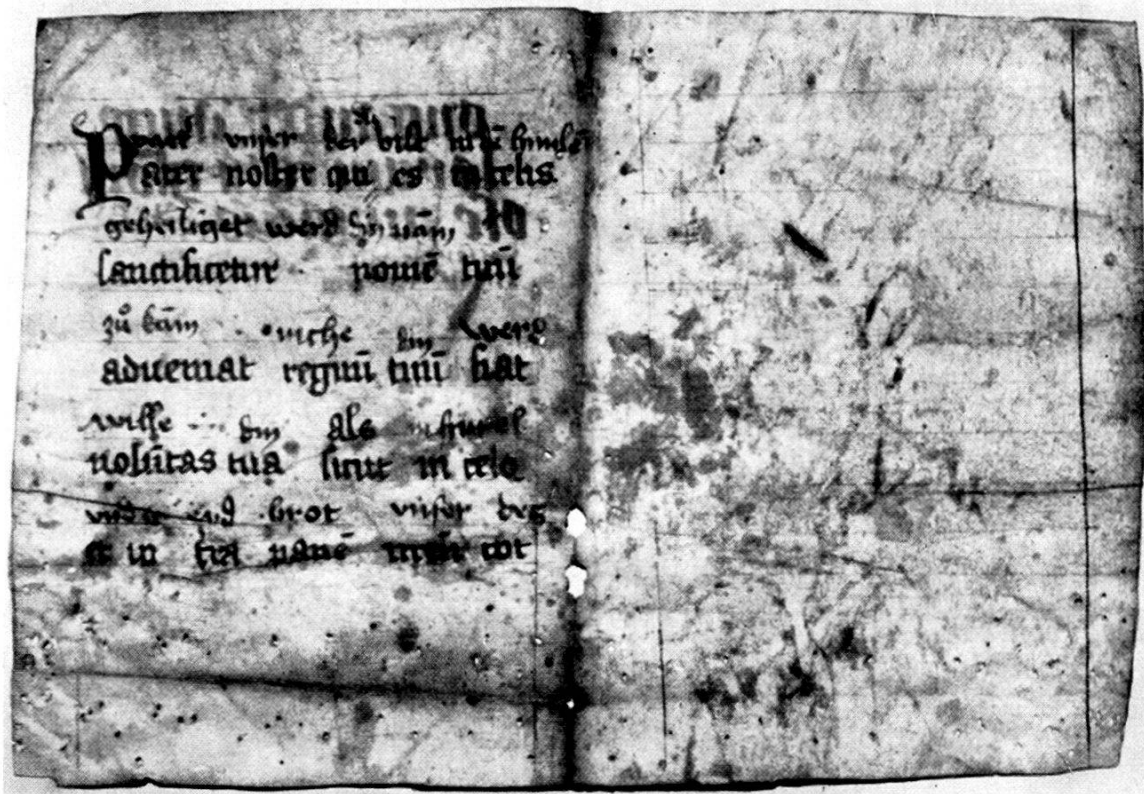 vnser der bist
Pater noster qui es in celis
geheiliget werd din nam
sanctificetur nomē tuū
zů kām riche din werd
adueniat regnū tuū fiat
wille din als himel
volūtas tua sicut in celo
brot vnser
et in tra panē nrm cot